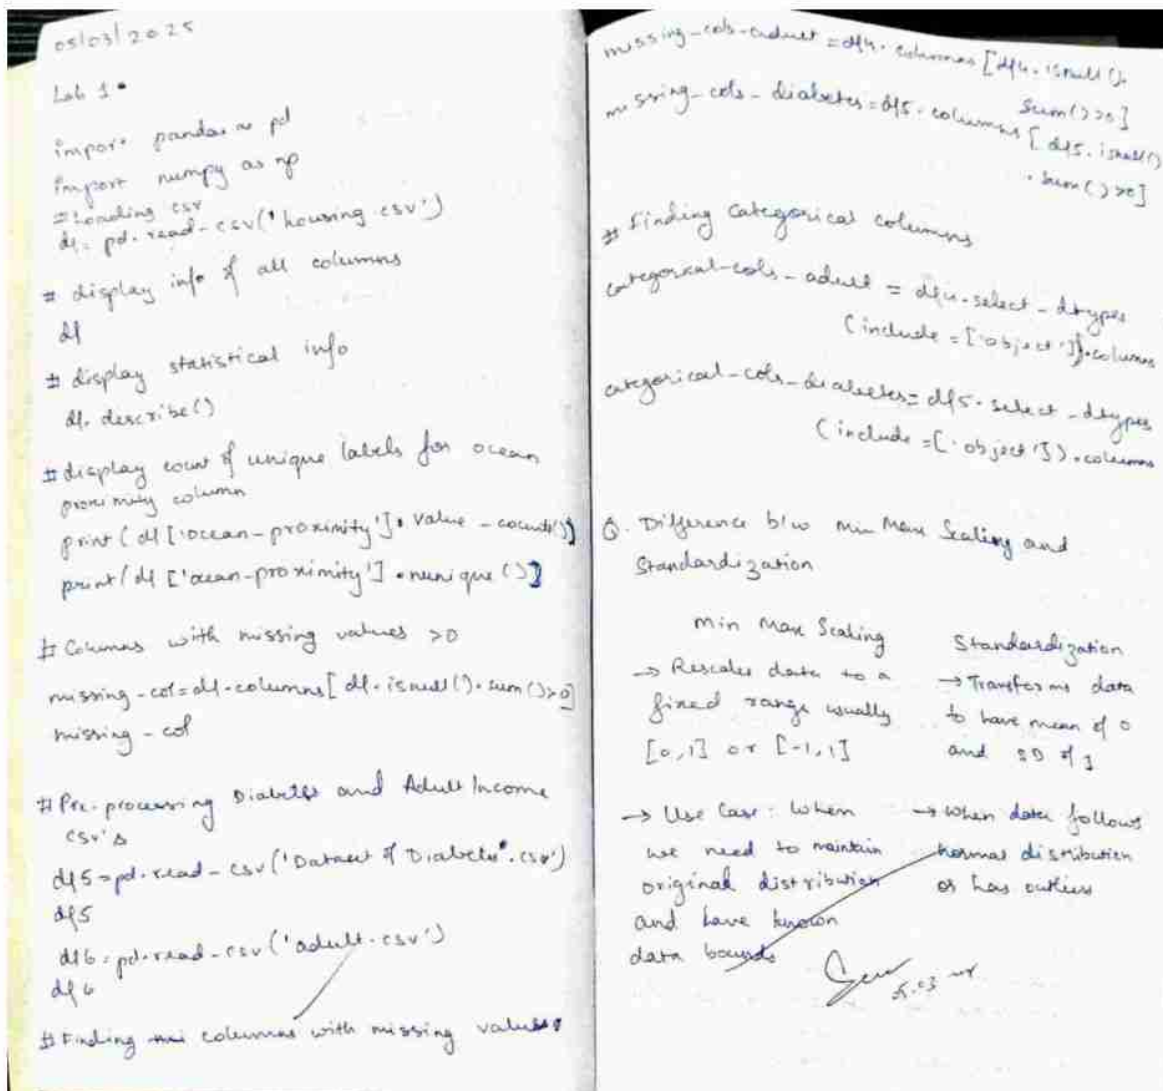 05/03/2025
Lab 1
import pandas as pd
import numpy as np
# Loading csv
df = pd.read_csv('housing.csv')
# display info of all columns
df
# display statistical info
df.describe()
# display count of unique labels for ocean
proximity column
print(df['ocean_proximity'].value_counts())
print(df['ocean_proximity'].nunique())
# Columns with missing values >0
missing_col=df.columns[df.isnull().sum()>0]
missing_col
# Pre-processing Diabetes and Adult Income
csv's
df5=pd.read_csv('Dataset of Diabetes.csv')
df5
df6=pd.read_csv('adult.csv')
df6
# Finding columns with missing values
missing_cols_adult=df4.columns[df4.isnull().
sum()>0]
missing_cols_diabetes=df5.columns[df5.isnull()
.sum()>0]
# Finding categorical columns
categorical_cols_adult = df4.select_dtypes
(include=['object']).columns
categorical_cols_diabetes=df5.select_dtypes
(include=['object']).columns
Q. Difference b/w min Max Scaling and
Standardization
Min Max Scaling
→ Rescales data to a
fixed range usually
[0,1] or [-1,1]
→ Use Case: When
we need to maintain
original distribution
and have known
data bounds
Standardization
→ Transforms data
to have mean of 0
and SD of 1
→ When data follows
normal distribution
or has outliers